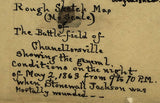 Rough Sketch Map
(No Scale)
of
The Battlefield of
Chancellorsville
Showing the general
Conditions on the night
of May 2, 1863 from 9 to 10 P.M.
when Stonewall Jackson was
Mortally wounded